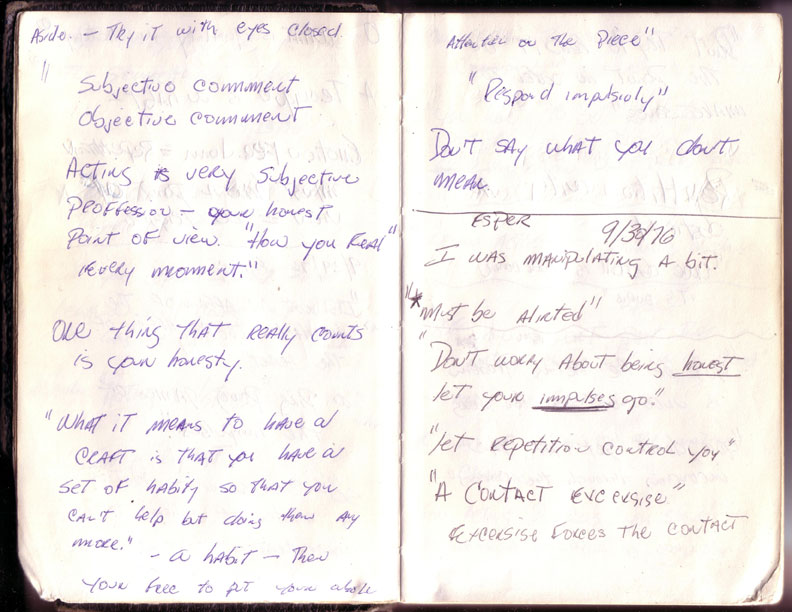 Aside. - Try it with eyes closed.
"
Subjective comment
Objective comment
Acting is very subjective
proffession - your honest
point of view. "How you Feel"
every moment."
One thing that really counts
is your honesty.
"What it means to have a
CRAFT is that you have a
set of habits so that you
can't help but doing them any
more." - a habit - Then
your free to put your whole
Attention on The Piece"
"Respond impulsivly"
Don't say what you don't
mean.
ESPER 9/30/76
I was manipulating a bit.
"* must be alirted"
"Don't worry about being honest
let your impulses go."
"let repetition control you"
"A Contact excersise"
Excersise Forces the contact